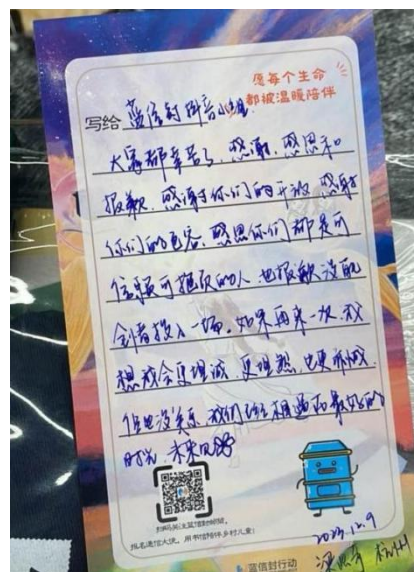 愿每个生命
都被温暖陪伴
写给 蓝信封
大家都辛苦了，感谢、感恩和
抱歉，感谢你们的开放，感谢
你们的包容，感恩你们都是可
信赖可
的人，也抱歉没能
全情投入一场，如果再来一次，我
想我会更坦诚，更坦然，也更
但也没关系，我们
相遇
最好的
时光，未来见
扫码关注蓝信封
报名通信大使，用书信陪伴乡村儿童！
2023.12.9
蓝信封行动
杭州